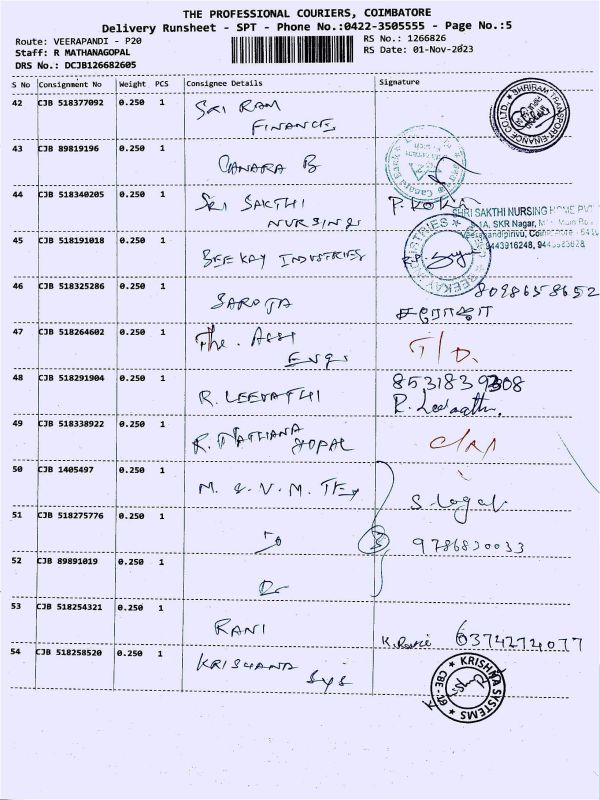 THE PROFESSIONAL COURIERS, COIMBATORE
Delivery Runsheet - SPT - Phone No.:0422-3505555 - Page No.:5
Route: VEERAPANDI - P20
RS No.: 1266826
Staff: R MATHANAGOPAL
RS Date: 01-Nov-2023
DRS No.: DCJB126682605
S No Consignment No Weight PCS Consignee Details Signature
42 CJB 518377092 0.250 1 SRI RAM
FINANCE
SHRIRAM TRANSPORT FINANCE CO.LTD.
43 CJB 89819196 0.250 1 CANARA B
Canara Bank
44 CJB 518340205 0.250 1 SRI SAKTHI
NURSING
SHRI SAKTHI NURSING HOME PVT
1A, SKR Nagar,
Veerapandipirivu, Coimbatore - 641
9443916248,
45 CJB 518191018 0.250 1 BEE KAY INDUSTRIES
BEEKAY INDUSTRIES
46 CJB 518325286 0.250 1 SAROJA
8098658652
சரோஜா
47 CJB 518264602 0.250 1 The. Asst
Engr
T/D.
48 CJB 518291904 0.250 1 R. LEEVATHI
R.
49 CJB 518338922 0.250 1 R. MATHANA
GOPAL
50 CJB 1405497 0.250 1 M. & V. M. TEX
S
51 CJB 518275776 0.250 1 Do
3
9786830033
52 CJB 89891019 0.250 1 Do
53 CJB 518254321 0.250 1 RANI
K. 6374274077
54 CJB 518258520 0.250 1 KRISHANA
Sys
KRISHNA SYSTEMS
CBE - 19